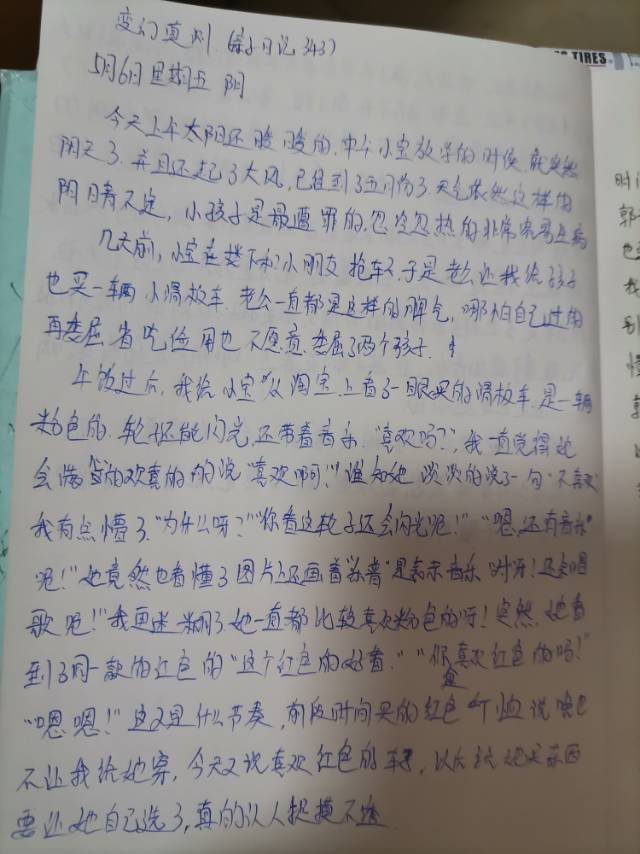 变幻莫测 (亲子日记 343)
TIRES
5月6日 星期五 阴
今天上午太阳还暖暖的,中午小宝放学的时候,就突然
阴天了,并且还起了大风,已经到了五月份了,天气依然这样的
阴晴不定,小孩子是最遭罪的,忽冷忽热的非常容易生病
几天前,小宝在楼下和小朋友抢车子,于是老公让我给孩子
也买一辆小滑板车,老公一直都是这样的脾气,哪怕自己过的
再委屈,省吃俭用也不愿意委屈了两个孩子.
午饭过后,我给小宝从淘宝上看了一眼买的滑板车,是一辆
粉色的,轮子还能闪光,还带着音乐,“喜欢吗?”,我一直觉得她
会满心欢喜的的说“喜欢啊!”谁知她淡淡的说了一句“不喜欢”
我有点懵了,“为什么呀?”“你看这轮子还会闪光呢!”“嗯,还有音乐
呢!”她竟然也看懂了图片上还画着音符是表示音乐“对呀!还会唱
歌呢!”我更迷糊了,她一直都比较喜欢粉色的呀!突然,她看
到了同一款的红色的“这个红色的好看.”“你喜欢红色的吗!”
“嗯嗯!”这又是什么节奏,前段时间买的红色T恤说啥也
不让我给她穿,今天又说喜欢红色的车,以后给她买东西
要让她自己选了,真的让人捉摸不透
时
郭
也
我
别
懂